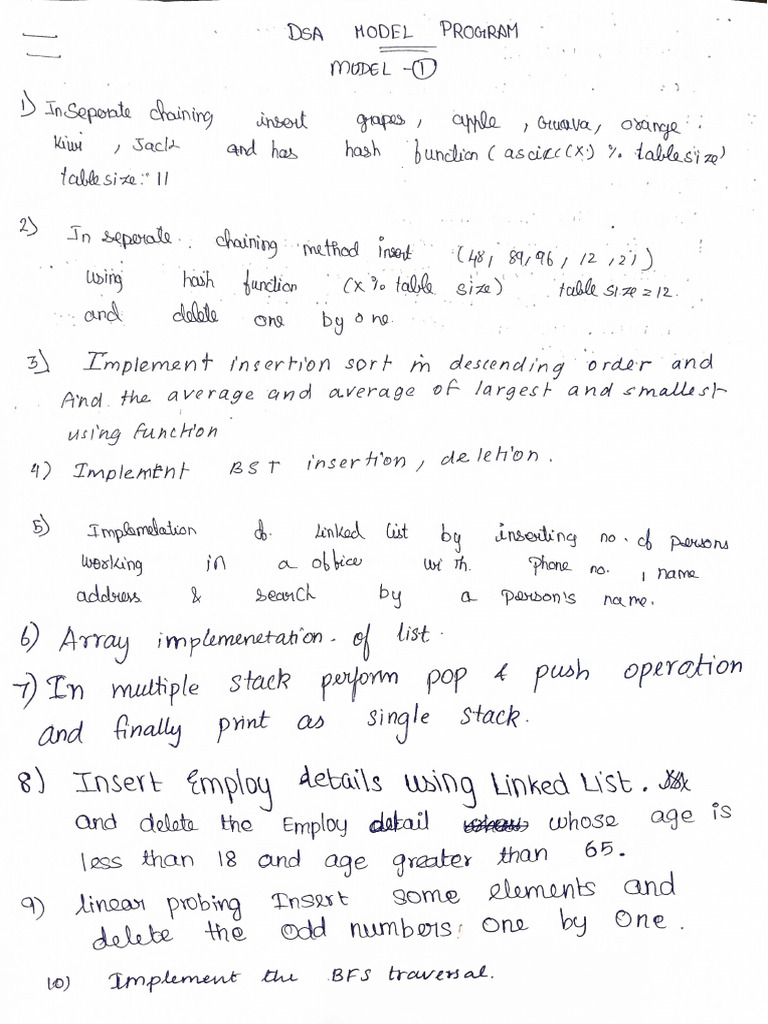 DSA MODEL PROGRAM
MODEL - ①
1) In Seperate chaining insert grapes, apple, Guava, orange
Kiwi, Jack and has hash function (ascii(x) % table size)
table size: 11
2) In seperate chaining method insert (48, 89, 96, 12, 21)
using hash function (x % table size) table size = 12.
and delete one by one.
3) Implement insertion sort in descending order and
find the average and average of largest and smallest
using function
4) Implement BST insertion, deletion.
5) Implemetation of linked list by inserting no. of persons
working in a office with phone no., name
address & search by a person's name.
6) Array implemenetation of list.
7) In multiple stack perform pop & push operation
and finally print as single stack.
8) Insert Employ details using Linked List.
and delete the Employ detail whose age is
less than 18 and age greater than 65.
9) linear probing Insert some elements and
delete the odd numbers one by one.
10) Implement the BFS traversal.